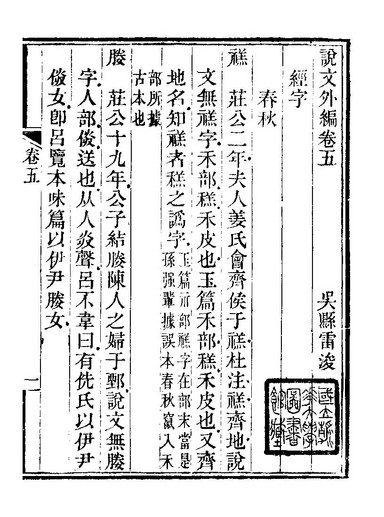 說文外編卷五
吳縣雷浚
經字
春秋
禚 莊公二年夫人姜氏會齊侯于禚杜注禚齊地說
文無禚字禾部䅵禾皮也玉篇禾部䅵禾皮也又齊
地名知禚者䅵之譌字
玉篇示部禚字在部末當是
孫强輩據誤本春秋竄入禾
部所據
古本也
媵 莊公十九年公子結媵陳人之婦于鄄說文無媵
字人部㑞送也从人灷聲呂不韋曰有侁氏以伊尹
㑞女卽呂覽本味篇以伊尹媵女
卷五
一